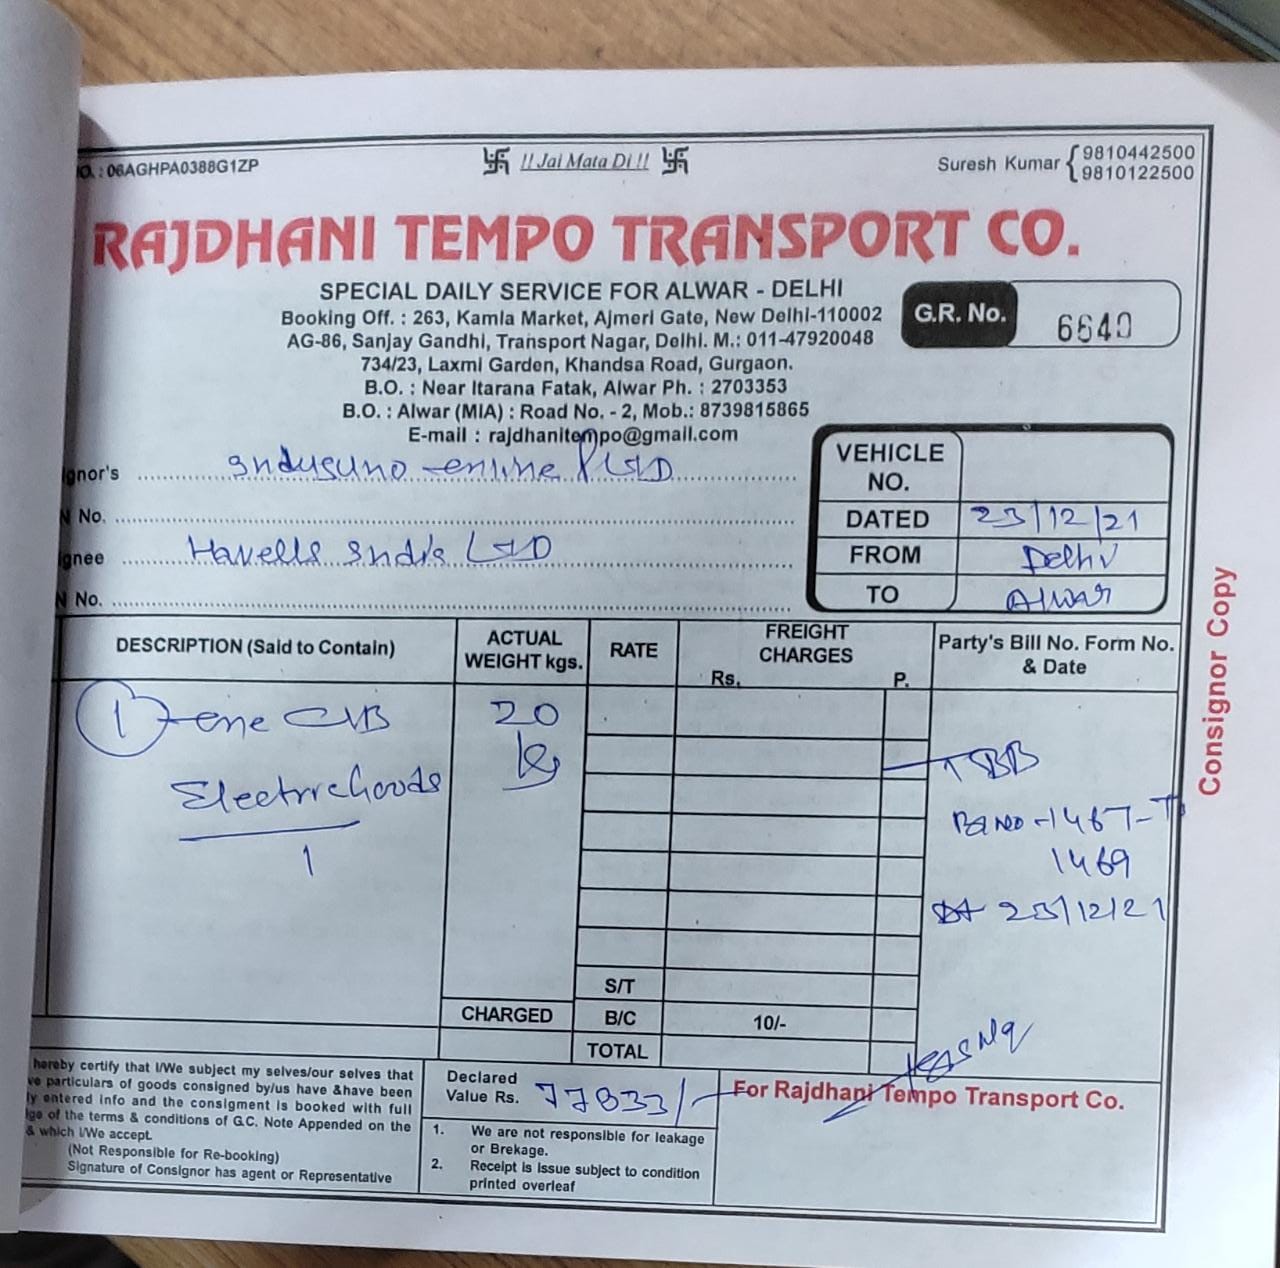 O. : 06AGHPA0388G1ZP
!! Jai Mata Di !!
Suresh Kumar { 9810442500
9810122500
RAJDHANI TEMPO TRANSPORT CO.
SPECIAL DAILY SERVICE FOR ALWAR - DELHI
Booking Off. : 263, Kamla Market, Ajmeri Gate, New Delhi-110002
AG-86, Sanjay Gandhi, Transport Nagar, Delhi. M.: 011-47920048
734/23, Laxmi Garden, Khandsa Road, Gurgaon.
B.O. : Near Itarana Fatak, Alwar Ph. : 2703353
B.O. : Alwar (MIA) : Road No. - 2, Mob.: 8739815865
E-mail : rajdhanitempo@gmail.com
G.R. No. 6640
gnor's
N No.
gnee Havells India LTD
N No.
VEHICLE NO.
DATED 23/12/21
FROM Delhi
TO Alwar
Consignor Copy
DESCRIPTION (Said to Contain)
ACTUAL WEIGHT kgs.
RATE
FREIGHT CHARGES
Rs. P.
Party's Bill No. Form No. & Date
1 one
20
Kg
Electric Goods
1
TBB
1467-To
1469
23/12/21
S/T
CHARGED B/C 10/-
TOTAL
hereby certify that I/We subject my selves/our selves that
ve particulars of goods consigned by/us have &have been
ly entered info and the consigment is booked with full
ge of the terms & conditions of G.C. Note Appended on the
& which I/We accept.
(Not Responsible for Re-booking)
Signature of Consignor has agent or Representative
Declared Value Rs. 77833/-
1. We are not responsible for leakage
or Brekage.
2. Receipt is issue subject to condition
printed overleaf
For Rajdhani Tempo Transport Co.